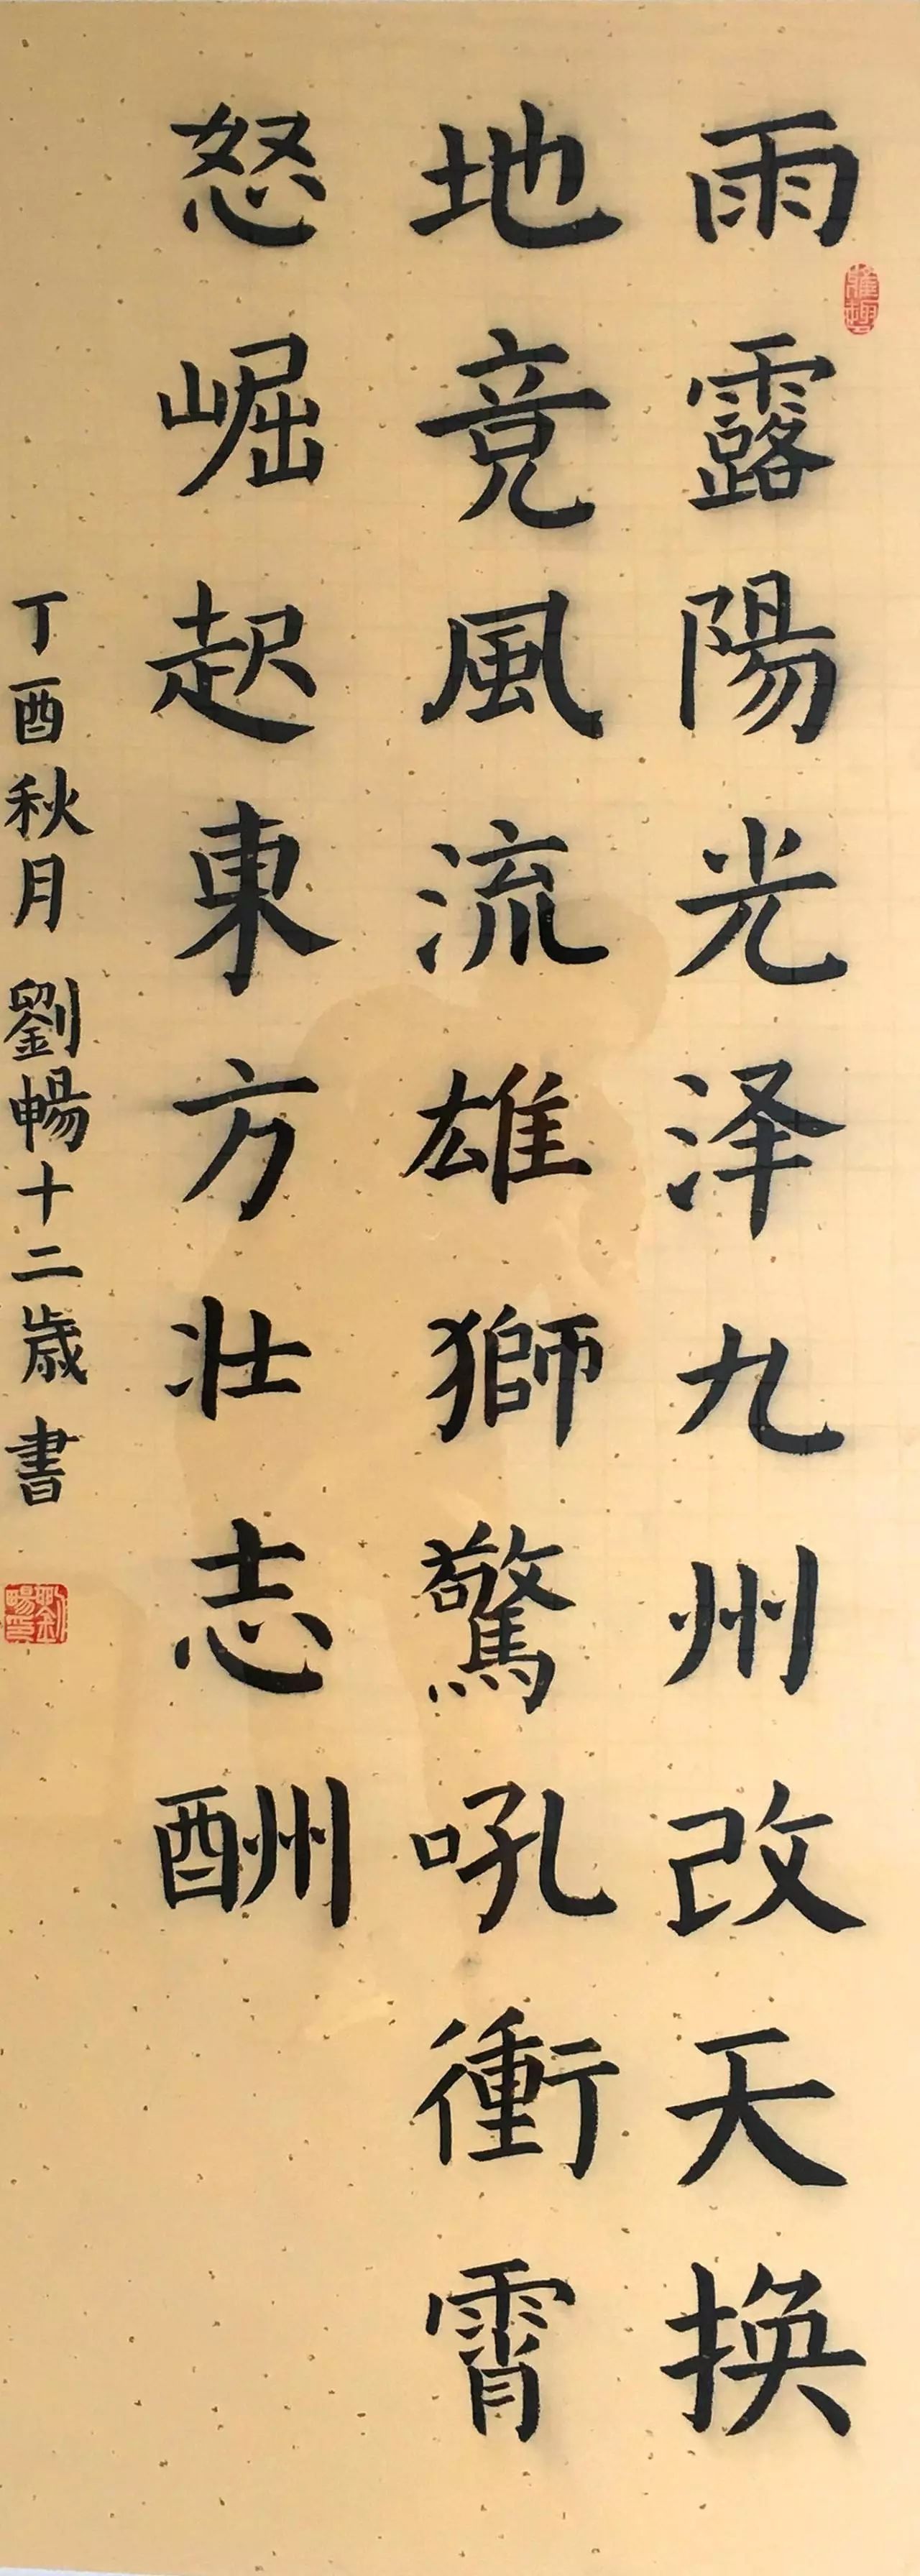 雨露陽光泽九州改天换
地竞風流雄獅驚吼衝霄
怒崛起東方壮志酬
丁酉秋月劉暢十二歳書
雅趣
劉暢印